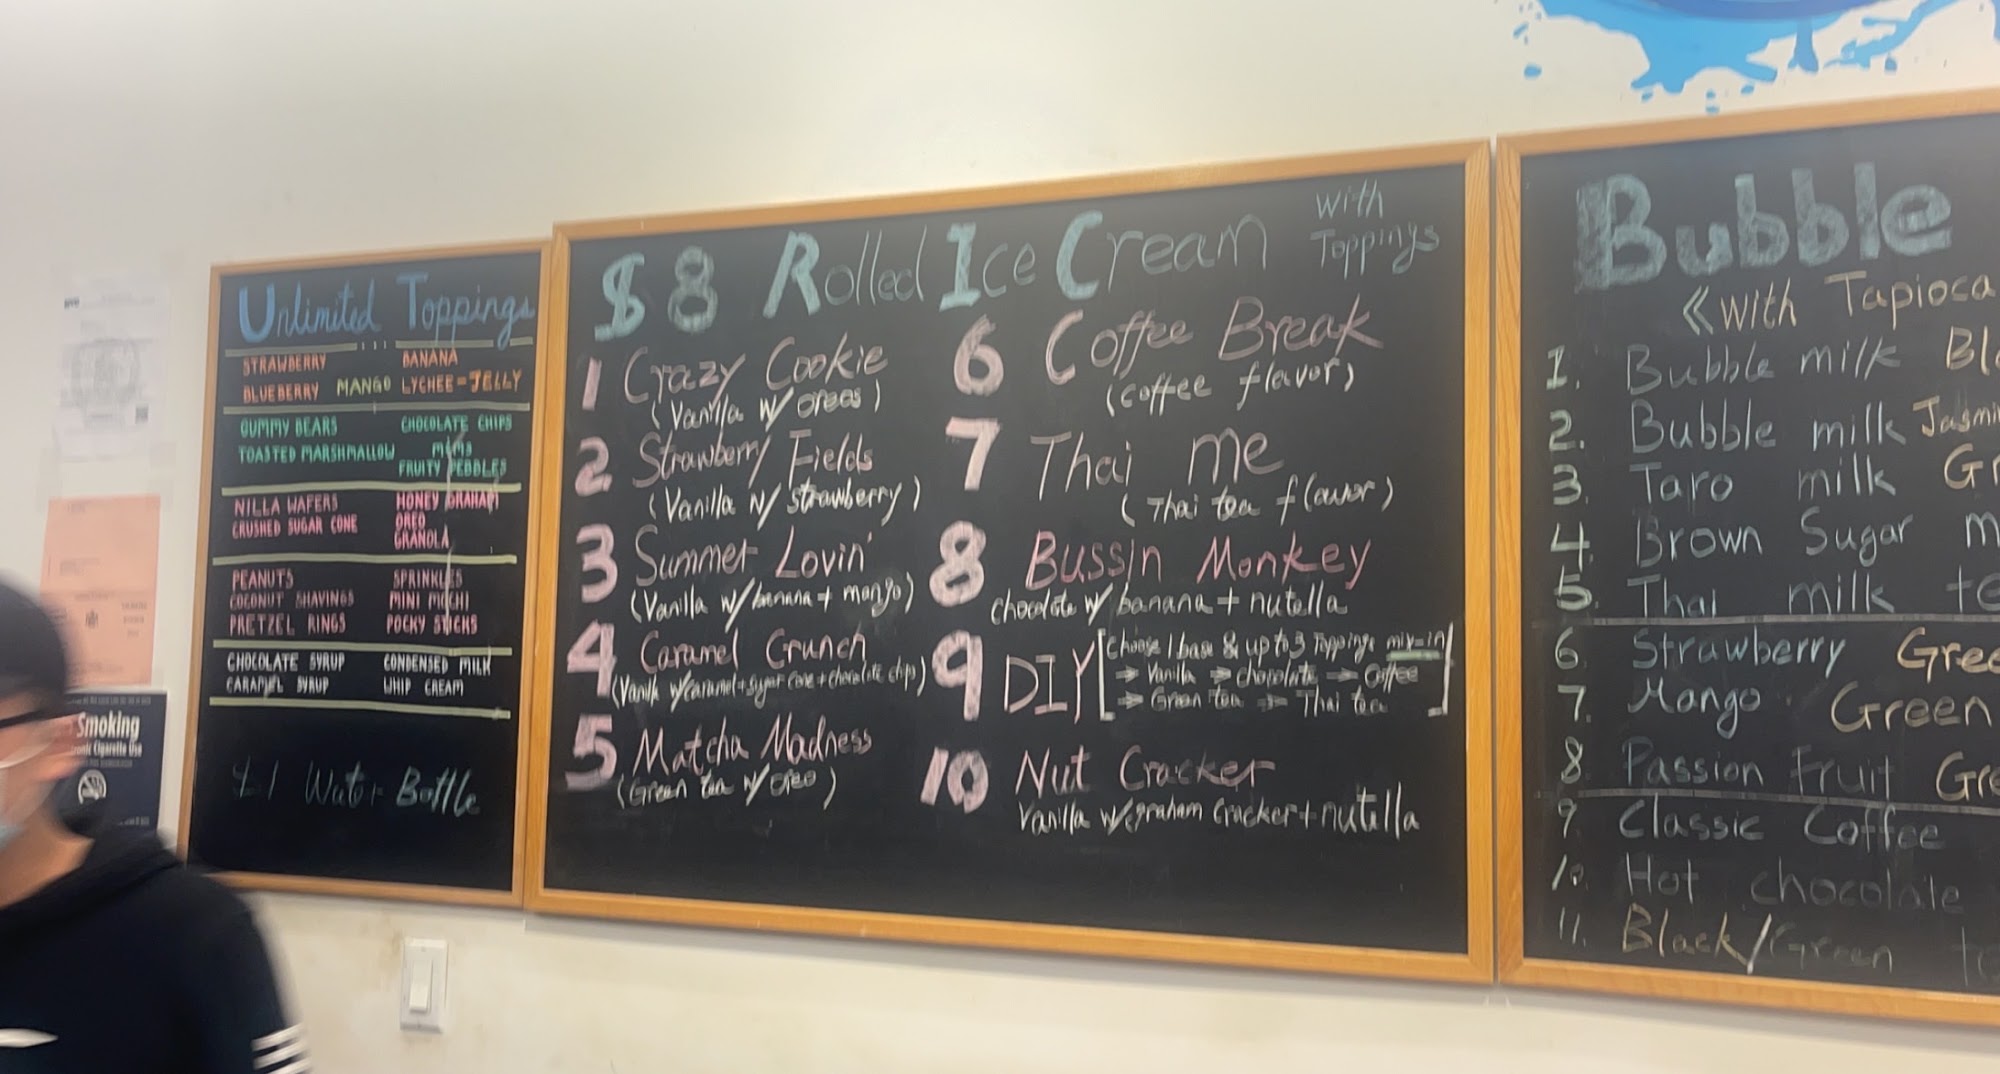 Unlimited Toppings
STRAWBERRY BANANA
BLUEBERRY MANGO LYCHEE-JELLY
GUMMY BEARS CHOCOLATE CHIPS
TOASTED MARSHMALLOW M&MS
FRUITY PEBBLES
NILLA WAFERS HONEY GRAHAM
CRUSHED SUGAR CONE OREO
GRANOLA
PEANUTS SPRINKLES
COCONUT SHAVINGS MINI MOCHI
PRETZEL RINGS POCKY STICKS
CHOCOLATE SYRUP CONDENSED MILK
CARAMEL SYRUP WHIP CREAM
$1 Water Bottle
Smoking
$8 Rolled Ice Cream with Toppings
1 Crazy Cookie
(Vanilla w/ oreos)
2 Strawberry Fields
(Vanilla w/ strawberry)
3 Summer Lovin'
(Vanilla w/ banana + mango)
4 Caramel Crunch
(Vanilla w/ caramel + sugar cone + chocolate chips)
5 Matcha Madness
(Green tea w/ oreo)
6 Coffee Break
(coffee flavor)
7 Thai me
(Thai tea flavor)
8 Bussin Monkey
chocolate w/ banana + nutella
9 DIY [Choose 1 base & up to 3 Toppings mix-in
→ Vanilla → chocolate → Coffee
→ Green Tea → Thai tea]
10 Nut Cracker
Vanilla w/ graham cracker + nutella
Bubble
«With Tapioca
1. Bubble milk
2. Bubble milk
3. Taro milk
4. Brown Sugar
5. Thai milk
6. Strawberry
7. Mango Green
8. Passion Fruit
9. Classic Coffee
10. Hot chocolate
11. Black/Green